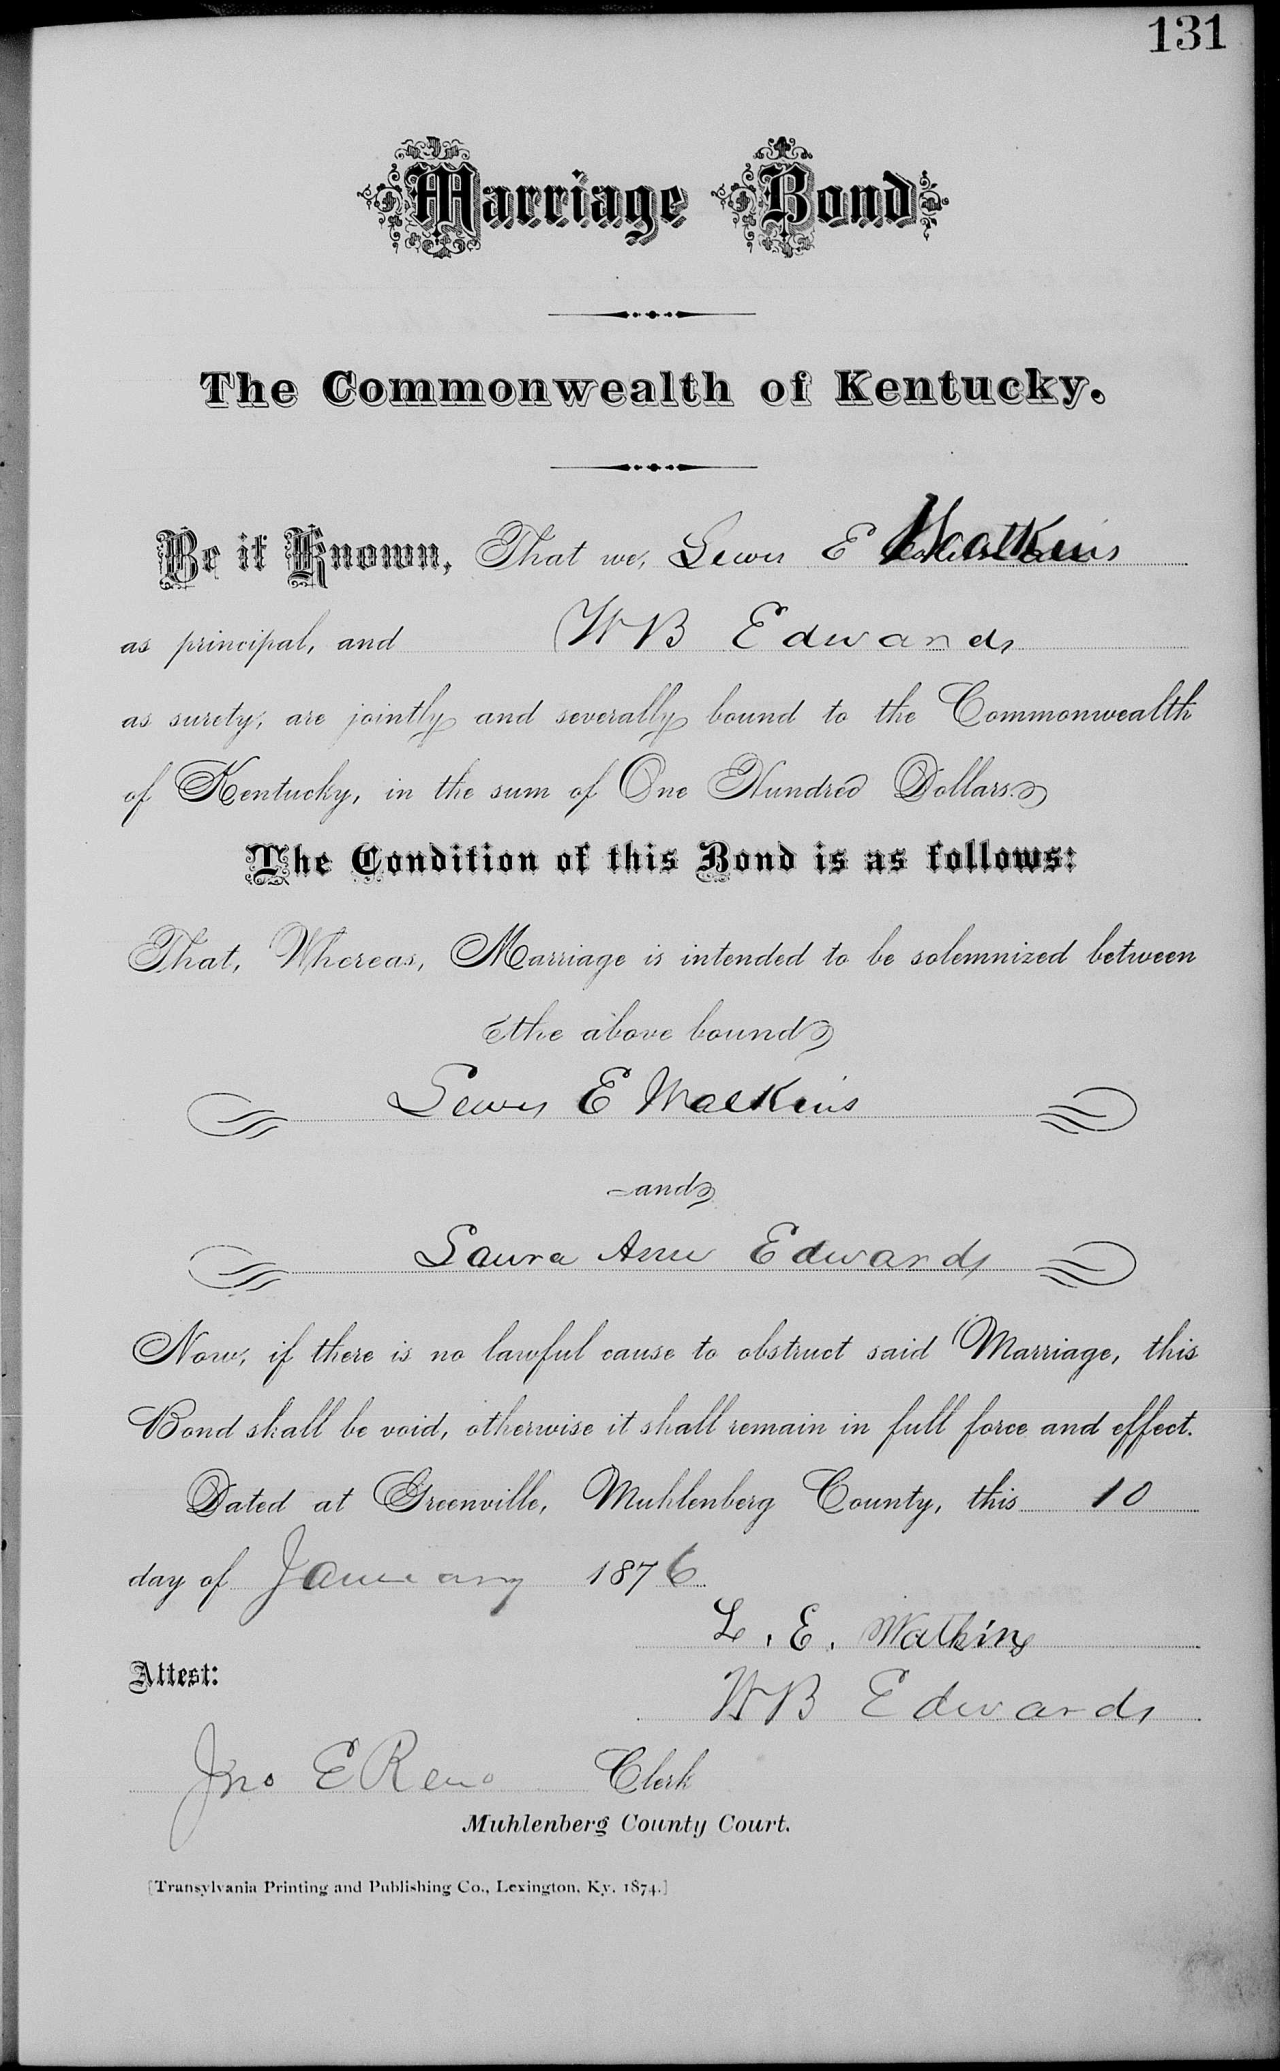 131
Marriage Bond
The Commonwealth of Kentucky.
Be it Known, That we, Lewis E Watkins
as principal, and W B Edwards
as surety, are jointly and severally bound to the Commonwealth
of Kentucky, in the sum of One Hundred Dollars.
The Condition of this Bond is as follows:
That, Whereas, Marriage is intended to be solemnized between
the above bound
Lewis E Watkins
and
Laura Ann Edwards
Now, if there is no lawful cause to obstruct said Marriage, this
Bond shall be void, otherwise it shall remain in full force and effect.
Dated at Greenville, Muhlenberg County, this 10
day of January 1876
L. E. Watkins
Attest:
W B Edwards
Jno E Reno Clerk
Muhlenberg County Court.
[Transylvania Printing and Publishing Co., Lexington, Ky. 1874.]